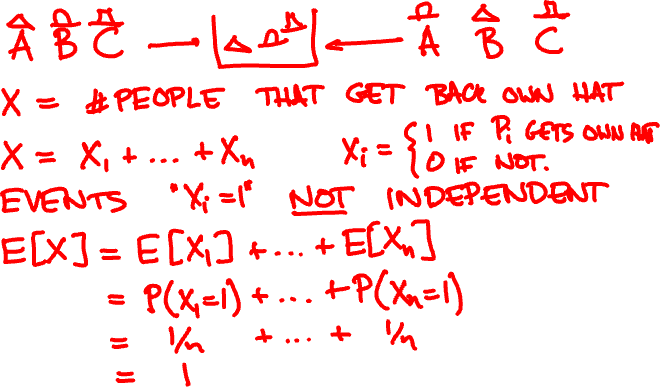 A B C A B C
X = # PEOPLE THAT GET BACK OWN HAT
X = X₁ + ... + Xₙ Xᵢ = { 1 IF Pᵢ GETS OWN HAT
0 IF NOT.
EVENTS "Xᵢ=1" NOT INDEPENDENT
E[X] = E[X₁] + ... + E[Xₙ]
= P(X₁=1) + ... + P(Xₙ=1)
= 1/n + ... + 1/n
= 1